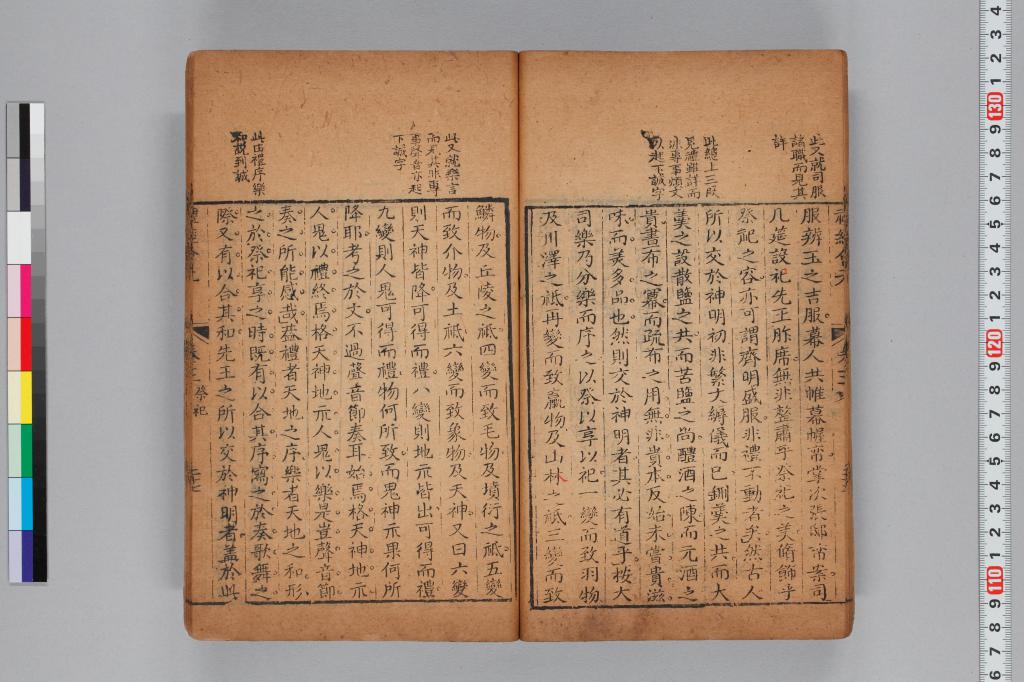 此又就司服
諸職而見其
詳
此總上三段
見禮雖詳而
非專事煩文
以起下誠字
服辨玉之吉服幕人共帷幕幄帟掌次張邸設案司
几筵設祀先王胙席無非整肅乎祭祀之美脩飾乎
祭祀之容亦可謂齊明盛服非禮不動者矣然古人
所以交於神明初非繁文縟儀而已鉶羹之共而大
羹之設散鹽之共而苦鹽之尚醴酒之陳而元酒之
貴畫布之冪而疏布之用無非貴本反始未嘗貴滋
味而美多品也然則交於神明者其必有道乎按大
司樂乃分樂而序之以祭以享以祀一變而致羽物
及川澤之祗再變而致臝物及山林之祗三變而致
此又就樂言
而見其非專
事聲音亦起
下誠字
此由禮序樂
和說到誠
鱗物及丘陵之祗四變而致毛物及墳衍之祗五變
而致介物及土祗六變而致象物及天神又曰六變
則天神皆降可得而禮八變則地示皆出可得而禮
九變則人鬼可得而禮物何所致而鬼神示果何所
降耶考之於文不過聲音節奏耳始焉格天神地示
人鬼以禮終焉格天神地示人鬼以樂是豈聲音節
奏之所能感哉蓋禮者天地之序樂者天地之和形
之於祭祀享之時既有以合其序寫之於奏歌舞之
際又有以合其和先王之所以交於神明者蓋於此
祭祀